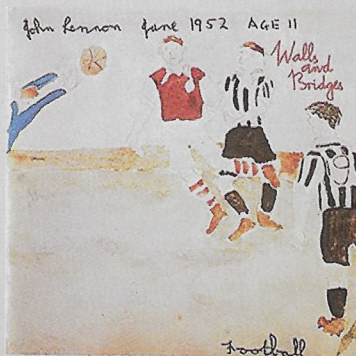 John Lennon June 1952 AGE 11
Walls
and
Bridges
Football